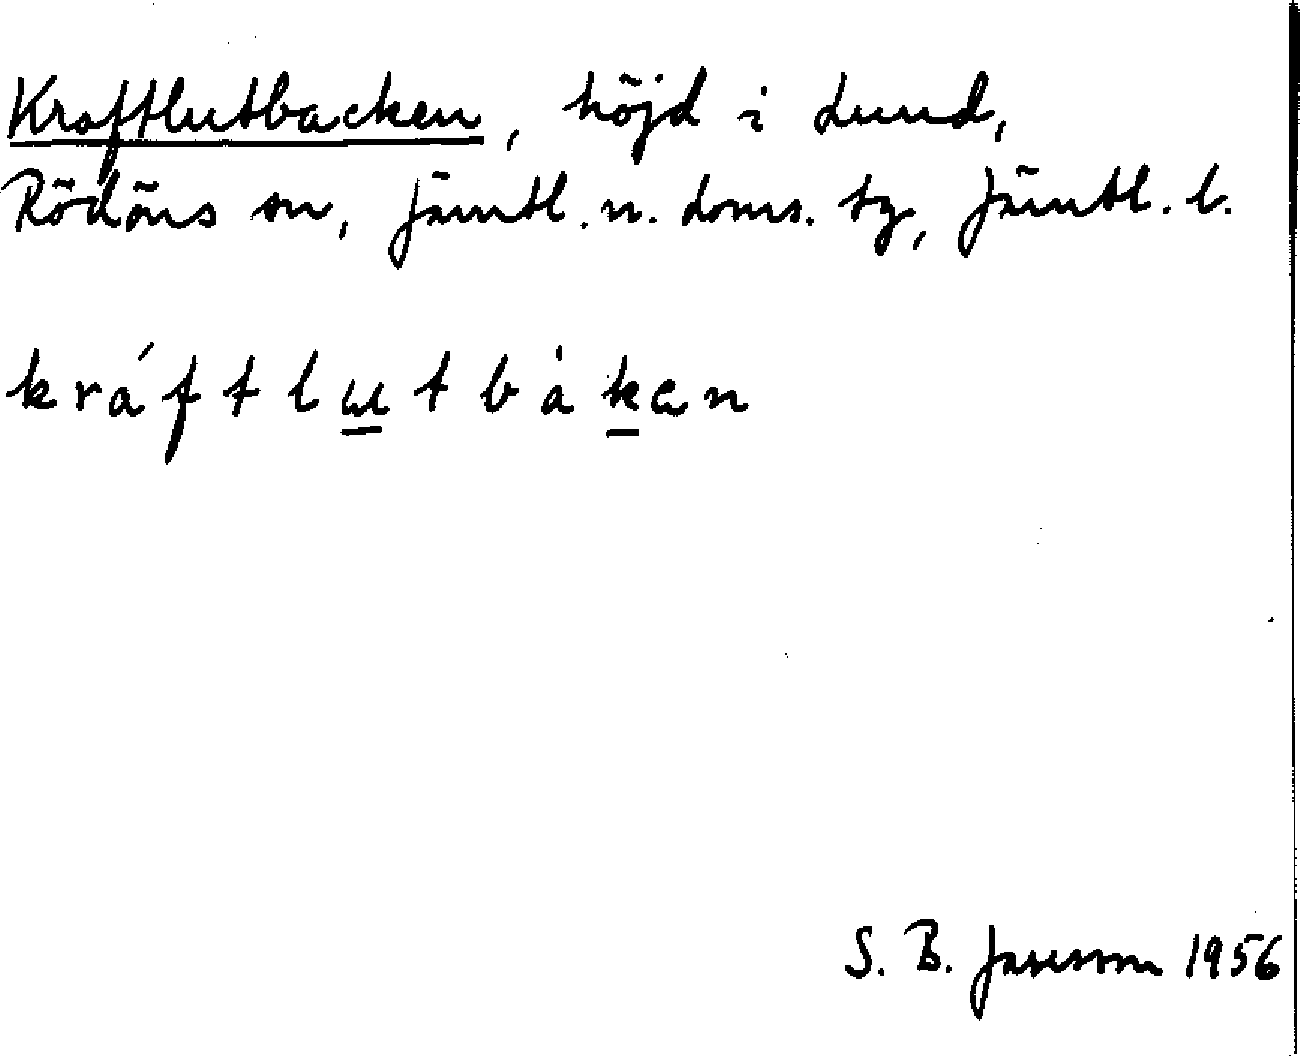 Kraftlutbacken, höjd i Lund,
Rödöns sn, Jämtl. n. doms. tg, Jämtl. l.
kráftlutbàkan
S. B. Jansson 1956